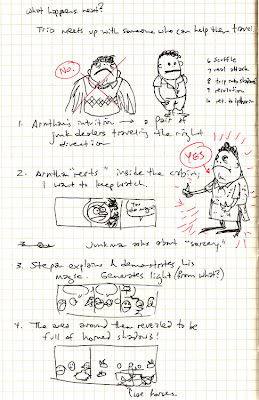 What happens next?
Trio meets up with someone who can help them travel.
NO.
6 scuffle
7 real attack
8 trip into shadows
9 resolution
10
1. Arntha's intuition → a pair of
junk dealers traveling the right
direction
2. Arntha rests "inside the cabin;
I want to keep watch.
YES
Junkma asks about "sorcery."
3. Stepan explains & demonstrates his
magic. Generates light (from what?)
4. The area around them revealed to be
full of horned shadows!
Live horses.